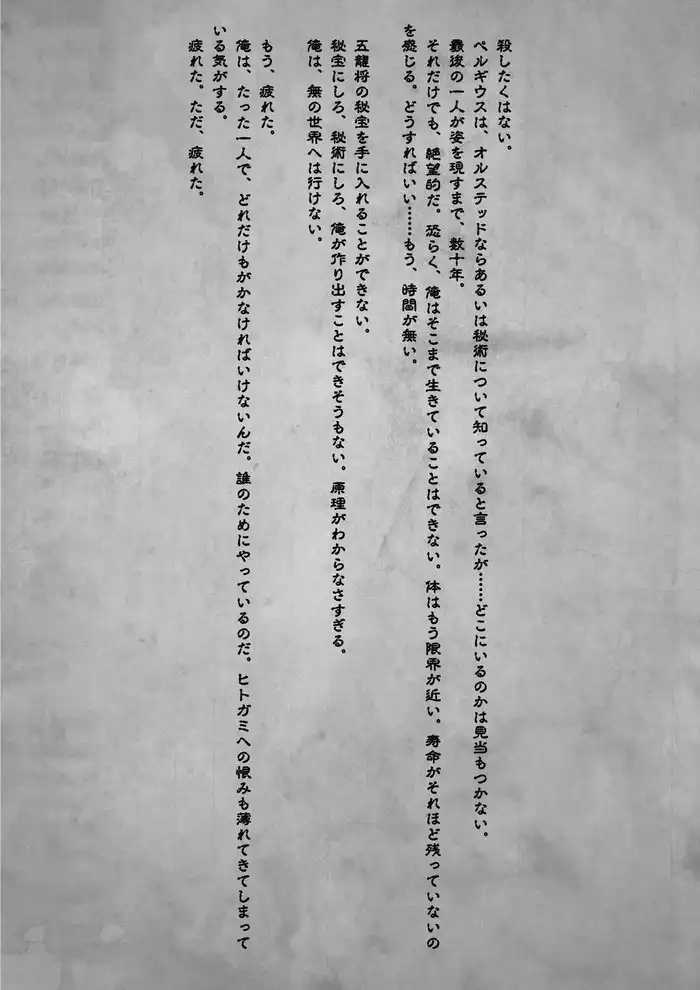 殺したくはない。
ペルギウスは、オルステッドならあるいは秘術について知っていると言ったが……どこにいるのかは見当もつかない。
最後の一人が姿を現すまで、数十年。
それだけでも、絶望的だ。恐らく、俺はそこまで生きていることはできない。体はもう限界が近い。寿命がそれほど残っていないの
を感じる。どうすればいい……もう、時間が無い。
五龍将の秘宝を手に入れることができない。
秘宝にしろ、秘術にしろ、俺が作り出すことはできそうもない。原理がわからなさすぎる。
俺は、無の世界へは行けない。
もう、疲れた。
俺は、たった一人で、どれだけもがかなければいけないんだ。誰のためにやっているのだ。ヒトガミへの恨みも薄れてきてしまって
いる気がする。
疲れた。ただ、疲れた。